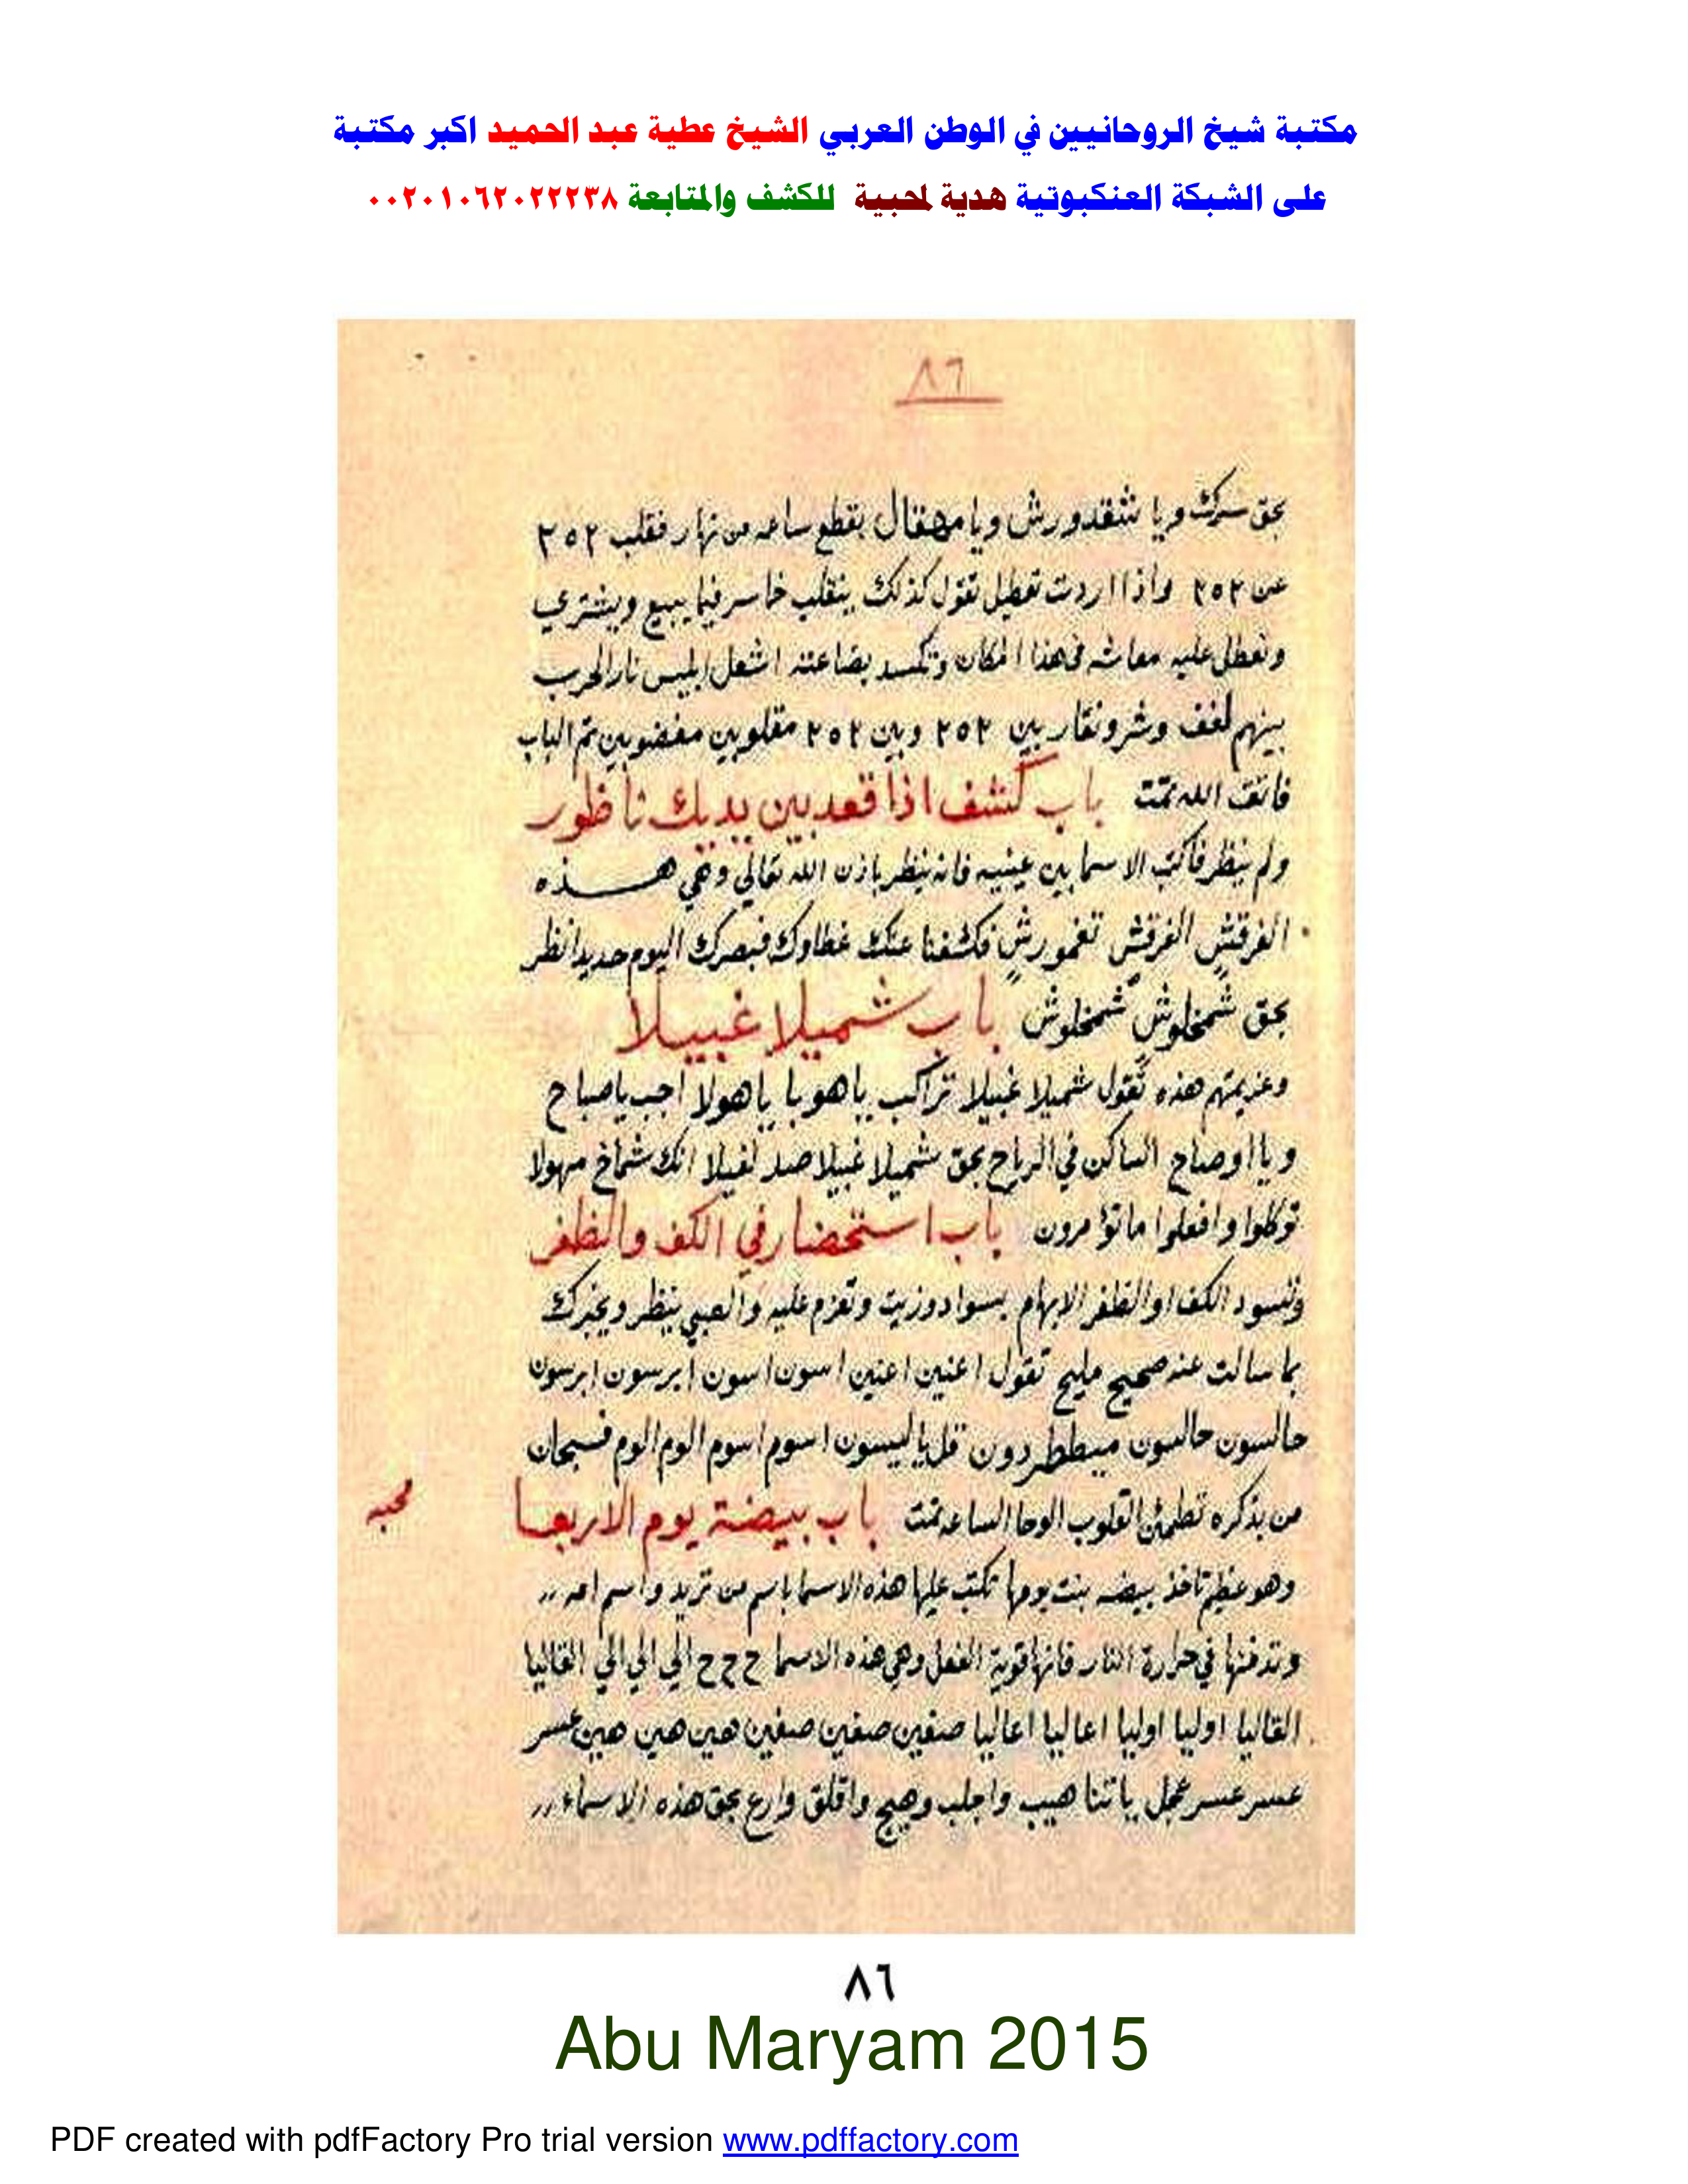 مكتبة شيخ الروحانيين في الوطن العربي الشيخ عطية عبد الحميد اكبر مكتبة
على الشبكة العنكبوتية هدية لمحبية للكشف والمتابعة ٠٠٢٠١٠٦٢٠٢٢٢٣٨
٨٦
بحق سركك ويا شقدورش ويا مهقال بقطع ساعه من نهار فقلب ٢٥٢
عن ٢٥٢ واذا اردت تعطيل تقول كذلك ينقلب خاسر فيما يبيع ويشتري
وتعطل عليه معاشه في هذا المكان وتكسد بضاعته اشعل ابليس نار الحرب
بينهم لغف وشر ونقار بين ٢٥٢ وبين ٢٥٢ مقلوبين مغضوبين تم الباب
فاتق الله تمت باب كشف اذا قعد بين يديك ناظور
ولم ينظر فاكتب الاسما بين عينيه فانه ينظر باذن الله تعالي وهي هـــذه
الغرقش الغرقش تغمورش فكشفنا عنك غطاوك فبصرك اليوم حديد انظر
بحق شمخلوش شمخلوش باب شميلا غبيلا
وعزيمتهم هذه تقول شميلا غبيلا تراكب ياهوبا ياهولا اجب ياصباح
ويا اوصباح الساكن في الرياح بحق شميلا غبيلا صد لغيلا انك شماخ مهولا
توكلوا وافعلوا ماتؤمرون باب استحضار في الكف والظفر
وتسود الكف او الظفر الابهام بسواد وزيت وتعزم عليه والصبي ينظر ويخبرك
بما سالت عنه صحيح مليح تقول اعنين اعنين اسون اسون ابرسون ابرسون
حالسون حالسون ميططردون قل يا ليسون اسوم اسوم الوم الوم فسبحان
من بذكره تطمئن القلوب الوحا الساعه تمت باب بيضة يوم الاربعـا
محبه
وهو عظيم تاخذ بيضه بنت يومها تكتب عليها هذه الاسما باسم من تريد واسم امه
وتدفنها في حرارة النار فانها قوية الفعل وهي هذه الاسما ح ح ح الي الي الي القاليا
القاليا اوليا اوليا اعاليا اعاليا صفين صفين صفين هين هين هين عسر
عسر عسر عجل ياتنا هيب واجلب وهيج واقلق وارع بحق هذه الاسماء
٨٦
Abu Maryam 2015
PDF created with pdfFactory Pro trial version www.pdffactory.com